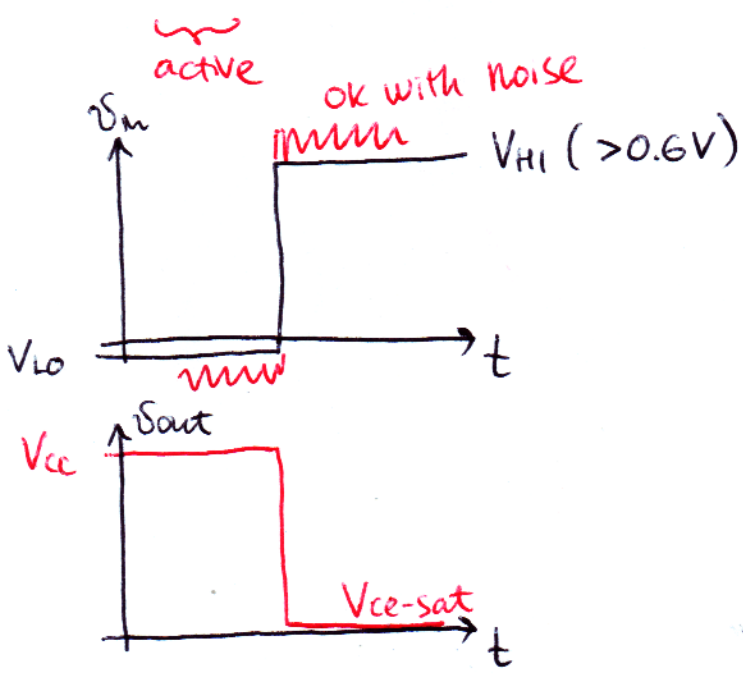 active
ok with noise
Vin
VHI (>0.6V)
VLO
t
Vout
Vcc
Vce-sat
t